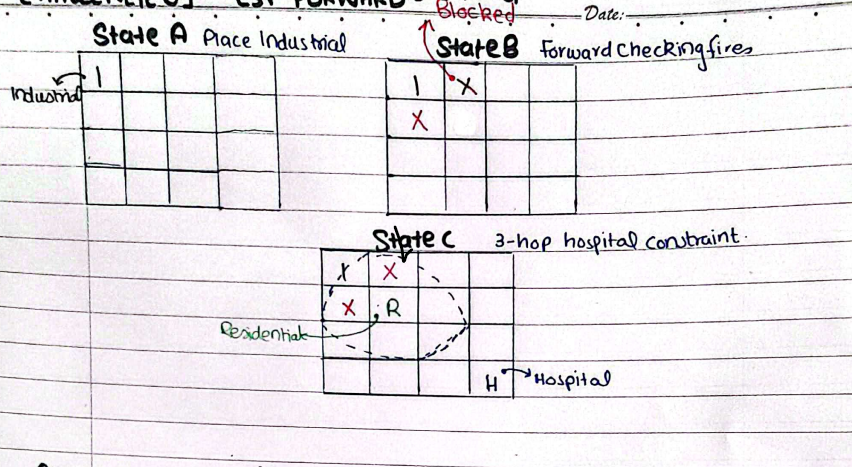 Blocked
Date:
State A Place Industrial
State B Forward Checking fires
Industrial
I
I X
X
State C 3-hop hospital constraint.
X X
X R
Residential
H Hospital